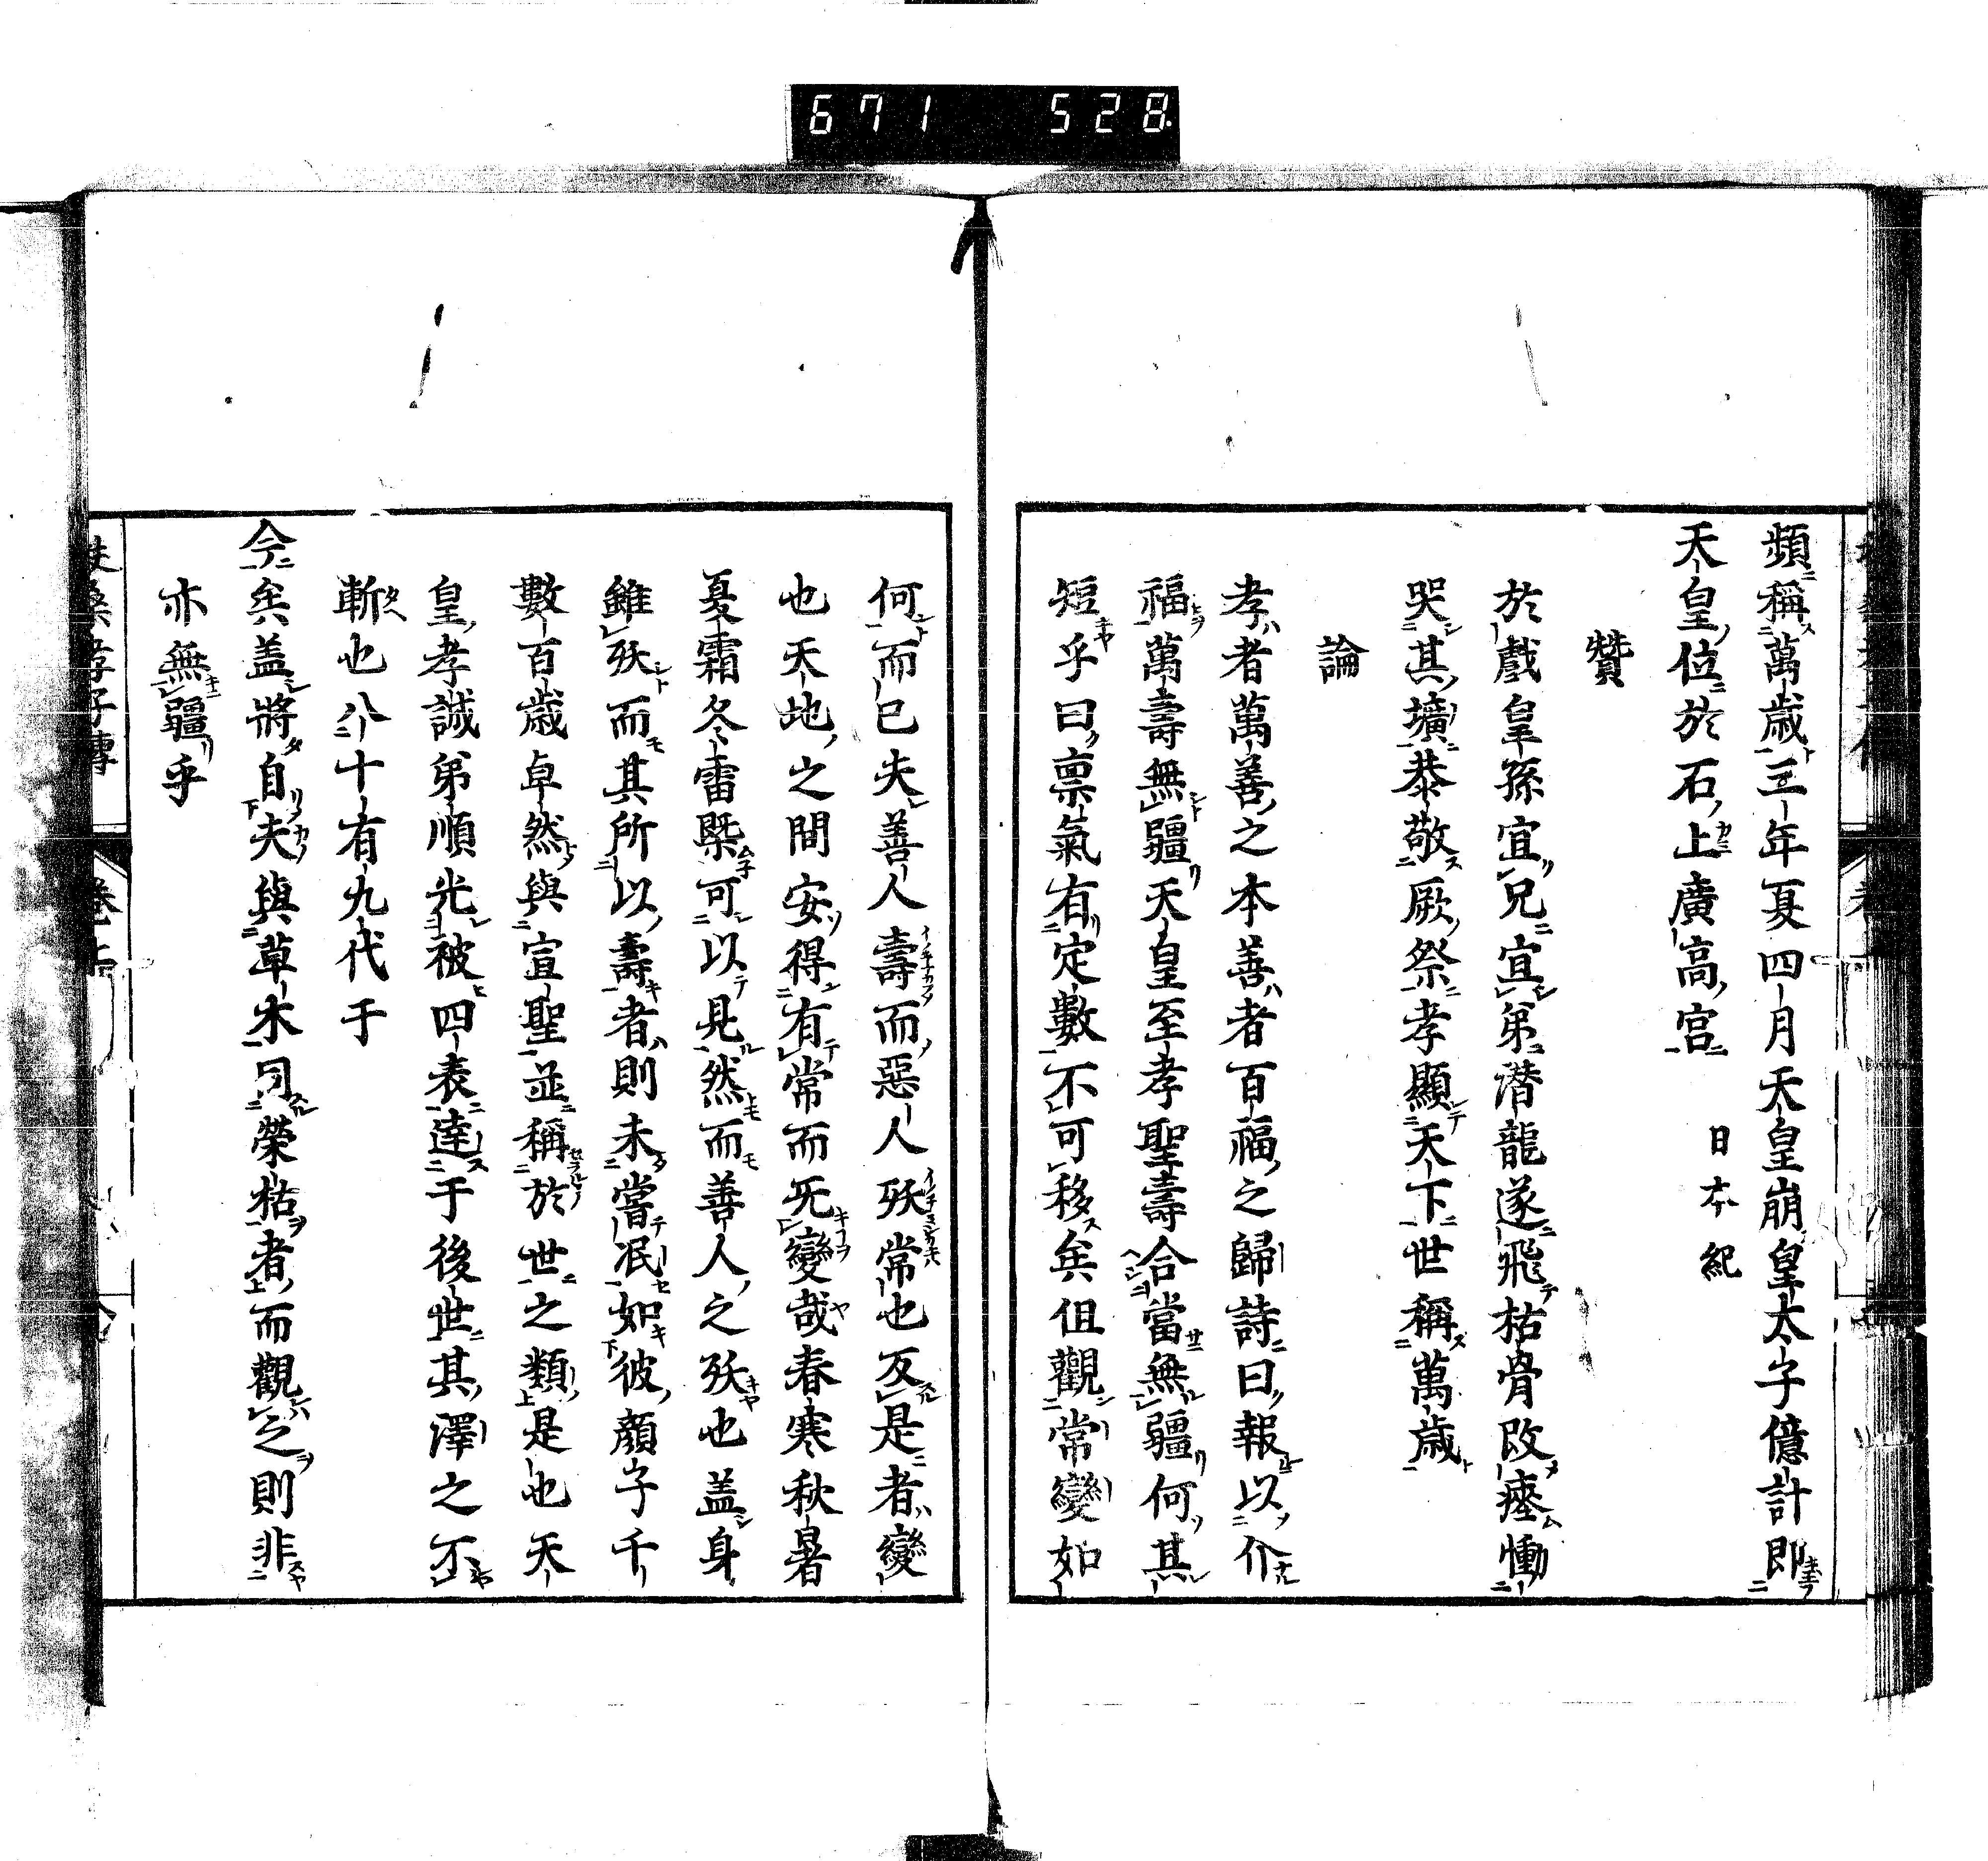 671 528
頻稱萬歲三年夏四月天皇崩皇太子億計即
天皇位於石上廣高宮 日本紀
贊
於戲皇孫宜兄宜弟潛龍遂飛枯骨改瘞慟
哭其壙恭敬厥祭孝顯天下世稱萬歲
論
孝者萬善之本善者百福之歸詩曰報以介
福萬壽無疆天皇至孝聖壽合當無疆何其
短乎曰稟氣有定數不可移矣但觀常變如
何而已夫善人壽而惡人殀常也反是者變
也天地之間安得有常而無變哉春寒秋暑
夏霜冬雷槩可以見然而善人之殀也盖身
雖殀而其所以壽者則未嘗泯如彼顏子千
數百歲卓然與宣聖並稱於世之類是也天
皇孝誠弟順光被四表達于後世其澤之不
斬也八十有九代于
今矣盖將自夫與草木同榮枯者而觀之則非
亦無疆乎
扶桑孝子傳 卷上